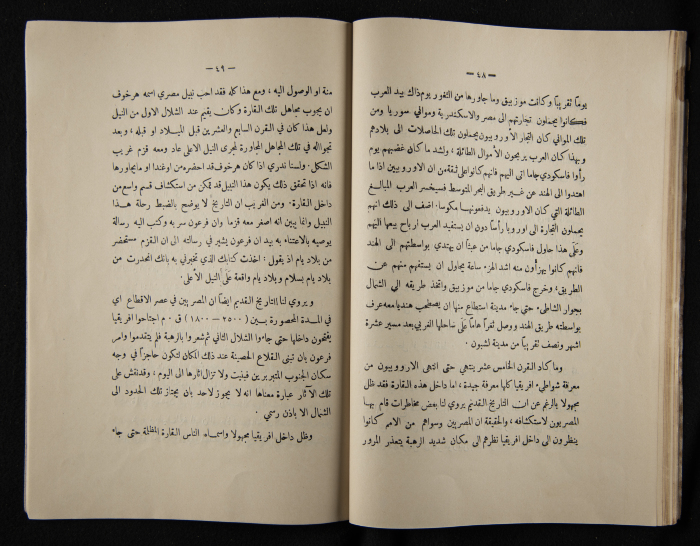 — ٤٨ —
يوماً تقريباً وكانت موزمبيق وما جاورها من الثغور يوم ذاك بيد العرب
فكانوا يحملون تجارتهم الى مصر والاسكندرية وموافي سوريا ومن
تلك الموافي كان التجار الأوروبيون يحملون تلك الحاصلات الى بلادهم
وبهذا كان العرب يربحون الأموال الطائلة ، ولشد ما كان غضبهم يوم
رأوا فاسكودي جاما اتى اليهم فانهم كانوا على ثقة من ان الاوروبيين اذا ما
اهتدوا الى الهند عن غير طريق البحر المتوسط فسيخسر العرب المبالغ
الطائلة التي كان الاوروبيون يدفعونها مكوسا. اضف الى ذلك انهم
يحملون التجارة الى اوروبا رأساً دون ان يستفيد العرب ارباح بيعها اليهم
وعلى هذا حاول فاسكودي جاما من عبثاً ان يهتدي بواسطتهم الى الهند
فانهم كانوا يهزأون منه اشد الهزء ساعة يحاول ان يستفهم منهم عن
الطريق، وخرج فاسكودي جاما من موزمبيق واتخذ طريقه الى الشمال
بجوار الشاطئ. حتى جاء مدينة استطاع منها ان يصطحب هنديا معه عرف
بواسطته طريق الهند ووصل ثغراً هاماً على ساحلها الغربي بعد مسير عشرة
اشهر ونصف تقريباً من مدينة لشبون .
وما كاد القرن الخامس عشر ينتهي حتى انتهى الاوروبيون من
معرفة شواطئ افريقيا كلها معرفة جيدة ، اما داخل هذه القارة فقد ظل
مجهولا بالرغم عن ان التاريخ القديم يروي لنا بعض مخاطرات قام بها
المصريون لاستكشافه ، والحقيقة ان المصريين وسواهم من الامم كانوا
ينظرون الى داخل افريقيا نظرهم الى مكان شديد الرهبة يتعذر المرور
— ٤٩ —
منة او الوصول اليه ، ومع هذا كله فقد احب نبيل مصري اسمه هرخوف
ان يجوب مجاهل تلك القارة وكان يقيم عند الشلال الاول من النيل
ولعل هذا كان في القرن السابع والعشرين قبل الميلاد او قبله ، وبعد
تجواله في تلك المجاهل المجاورة لمجرى النيل الاعلى عاد ومعه قزم غريب
الشكل. ولسنا ندري اذا كان هرخوف قد احضره من اوغندا او مايجاورها
فانه اذا تحقق ذلك يكون هذا النبيل قد تمكن من استكشاف قسم واسع من
داخل القارة. ومن الغريب ان التاريخ لا يوضح بالضبط رحلة هذا
النبيل وانما يبين انه اصغر معه قزما وان فرعون سر به وكتب اليه رسالة
يوصيه بالاعتناء به بيد ان فرعون يشير في رسالته الى ان القزم مستحضر
من بلاد يام اذ يقول : اخذت كتابك الذي تخبرني به بانك انحدرت من
بلاد يام بسلام وبلاد يام واقعة على النيل الأعلى.
و يروي لنا التاريخ القديم ايضاً ان المصريين في عصر الاقطاع اي
في المدة المحصورة بين ( ٢٥٠٠ – ١٨٠٠ ) ق . م اجتاحوا افريقيا
يفتحون داخلها حتى جاءوا الشلال الثاني ثم شعروا بالرهبة فلم يتقدموا وامر
فرعون بان تبنى القلاع الحصينة عند ذلك المكان لتكون حاجزاً في وجه
سكان الجنوب المتبربرين فبنيت ولا تزال اثارها الى اليوم ، وقد نقش على
تلك الآثار عبارة معناها انه لا يجوز لاحد بان يجتاز تلك الحدود الى
الشمال الا باذن رسمي .
وظل داخل افريقيا مجهولا واسماء الناس القارة المظلمة حتى جاء